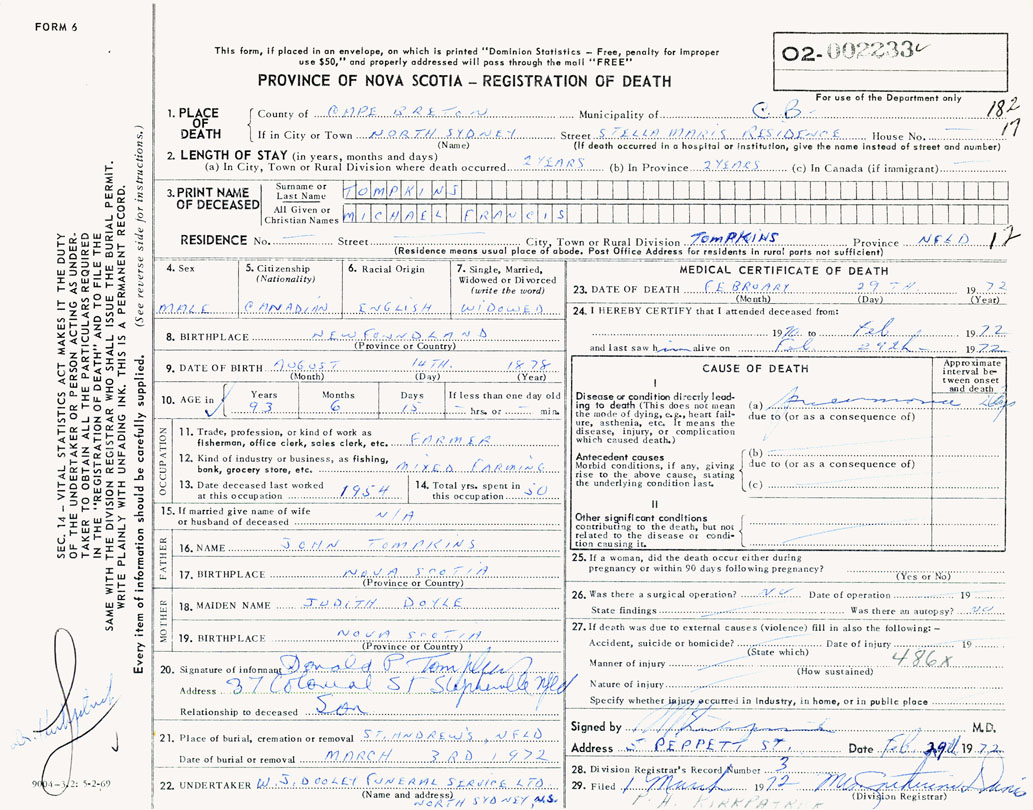 FORM 6
This form, if placed in an envelope, on which is printed "Dominion Statistics - Free, penalty for improper
use $50," and properly addressed will pass through the mail "FREE"
PROVINCE OF NOVA SCOTIA - REGISTRATION OF DEATH
02-002233
For use of the Department only
182
17
1. PLACE OF DEATH
County of CAPE BRETON Municipality of C B
If in City or Town NORTH SYDNEY Street STELLA MARIS RESIDENCE House No.
(Name) (If death occurred in a hospital or institution, give the name instead of street and number)
2. LENGTH OF STAY (in years, months and days)
(a) In City, Town or Rural Division where death occurred 2 YEARS (b) In Province 2 YEARS (c) In Canada (if immigrant)
3. PRINT NAME OF DECEASED
Surname or Last Name TOMPKINS
All Given or Christian Names MICHAEL FRANCIS
RESIDENCE No. Street City, Town or Rural Division TOMPKINS Province NFLD 12
(Residence means usual place of abode. Post Office Address for residents in rural parts not sufficient)
4. Sex
MALE
5. Citizenship
(Nationality)
CANADIAN
6. Racial Origin
ENGLISH
7. Single, Married,
Widowed or Divorced
(write the word)
WIDOWED
8. BIRTHPLACE NEWFOUNDLAND
(Province or Country)
9. DATE OF BIRTH AUGUST 14TH. 1878
(Month) (Day) (Year)
10. AGE in Years Months Days If less than one day old
93 6 15 hrs. or min.
OCCUPATION
11. Trade, profession, or kind of work as
fisherman, office clerk, sales clerk, etc. FARMER
12. Kind of industry or business, as fishing,
bank, grocery store, etc. MIXED FARMING
13. Date deceased last worked
at this occupation 1954
14. Total yrs. spent in
this occupation 50
15. If married give name of wife
or husband of deceased N/A
FATHER
16. NAME JOHN TOMPKINS
17. BIRTHPLACE NOVA SCOTIA
(Province or Country)
MOTHER
18. MAIDEN NAME JUDITH DOYLE
19. BIRTHPLACE NOVA SCOTIA
(Province or Country)
20. Signature of informant Donald P Tompkins
Address 37 Colonial St Stephenville Nfld
Relationship to deceased Son
21. Place of burial, cremation or removal ST. ANDREW'S, NFLD
Date of burial or removal MARCH 3RD 1972
22. UNDERTAKER W. J. DOOLEY FUNERAL SERVICE LTD
(Name and address)
NORTH SYDNEY, N.S.
MEDICAL CERTIFICATE OF DEATH
23. DATE OF DEATH FEBRUARY 29TH 1972
(Month) (Day) (Year)
24. I HEREBY CERTIFY that I attended deceased from:
1970 to Feb 1972
and last saw him alive on Feb 29th 1972
CAUSE OF DEATH
Approximate interval between onset and death
I
Disease or condition directly leading to death (This does not mean the mode of dying, e.g., heart failure, asthenia, etc. It means the disease, injury, or complication which caused death.)
(a) Pneumonia Days
due to (or as a consequence of)
Antecedent causes
Morbid conditions, if any, giving rise to the above cause, stating the underlying condition last.
(b)
due to (or as a consequence of)
(c)
II
Other significant conditions
contributing to the death, but not related to the disease or condition causing it.
25. If a woman, did the death occur either during
pregnancy or within 90 days following pregnancy?
(Yes or No)
26. Was there a surgical operation? NO Date of operation 19
State findings Was there an autopsy? NO
27. If death was due to external causes (violence) fill in also the following:-
Accident, suicide or homicide? Date of injury 19
(State which) 486x
Manner of injury
(How sustained)
Nature of injury
Specify whether injury occurred in industry, in home, or in public place
Signed by M.D.
Address 5 PEPPETT ST. Date Feb. 29th 1972
28. Division Registrar's Record Number 3
29. Filed 1 March 1972
(Division Registrar)
KIRKPATRICK
SEC. 14 - VITAL STATISTICS ACT MAKES IT THE DUTY
OF THE UNDERTAKER OR PERSON ACTING AS UNDER-
TAKER TO OBTAIN ALL THE PARTICULARS REQUIRED
IN THE "REGISTRATION OF DEATH" AND TO FILE THE
SAME WITH THE DIVISION REGISTRAR WHO SHALL ISSUE THE BURIAL PERMIT.
WRITE PLAINLY WITH UNFADING INK. THIS IS A PERMANENT RECORD.
Every item of information should be carefully supplied. (See reverse side for instructions.)
Dr. Kirkpatrick
9004-3/2: 5-2-69